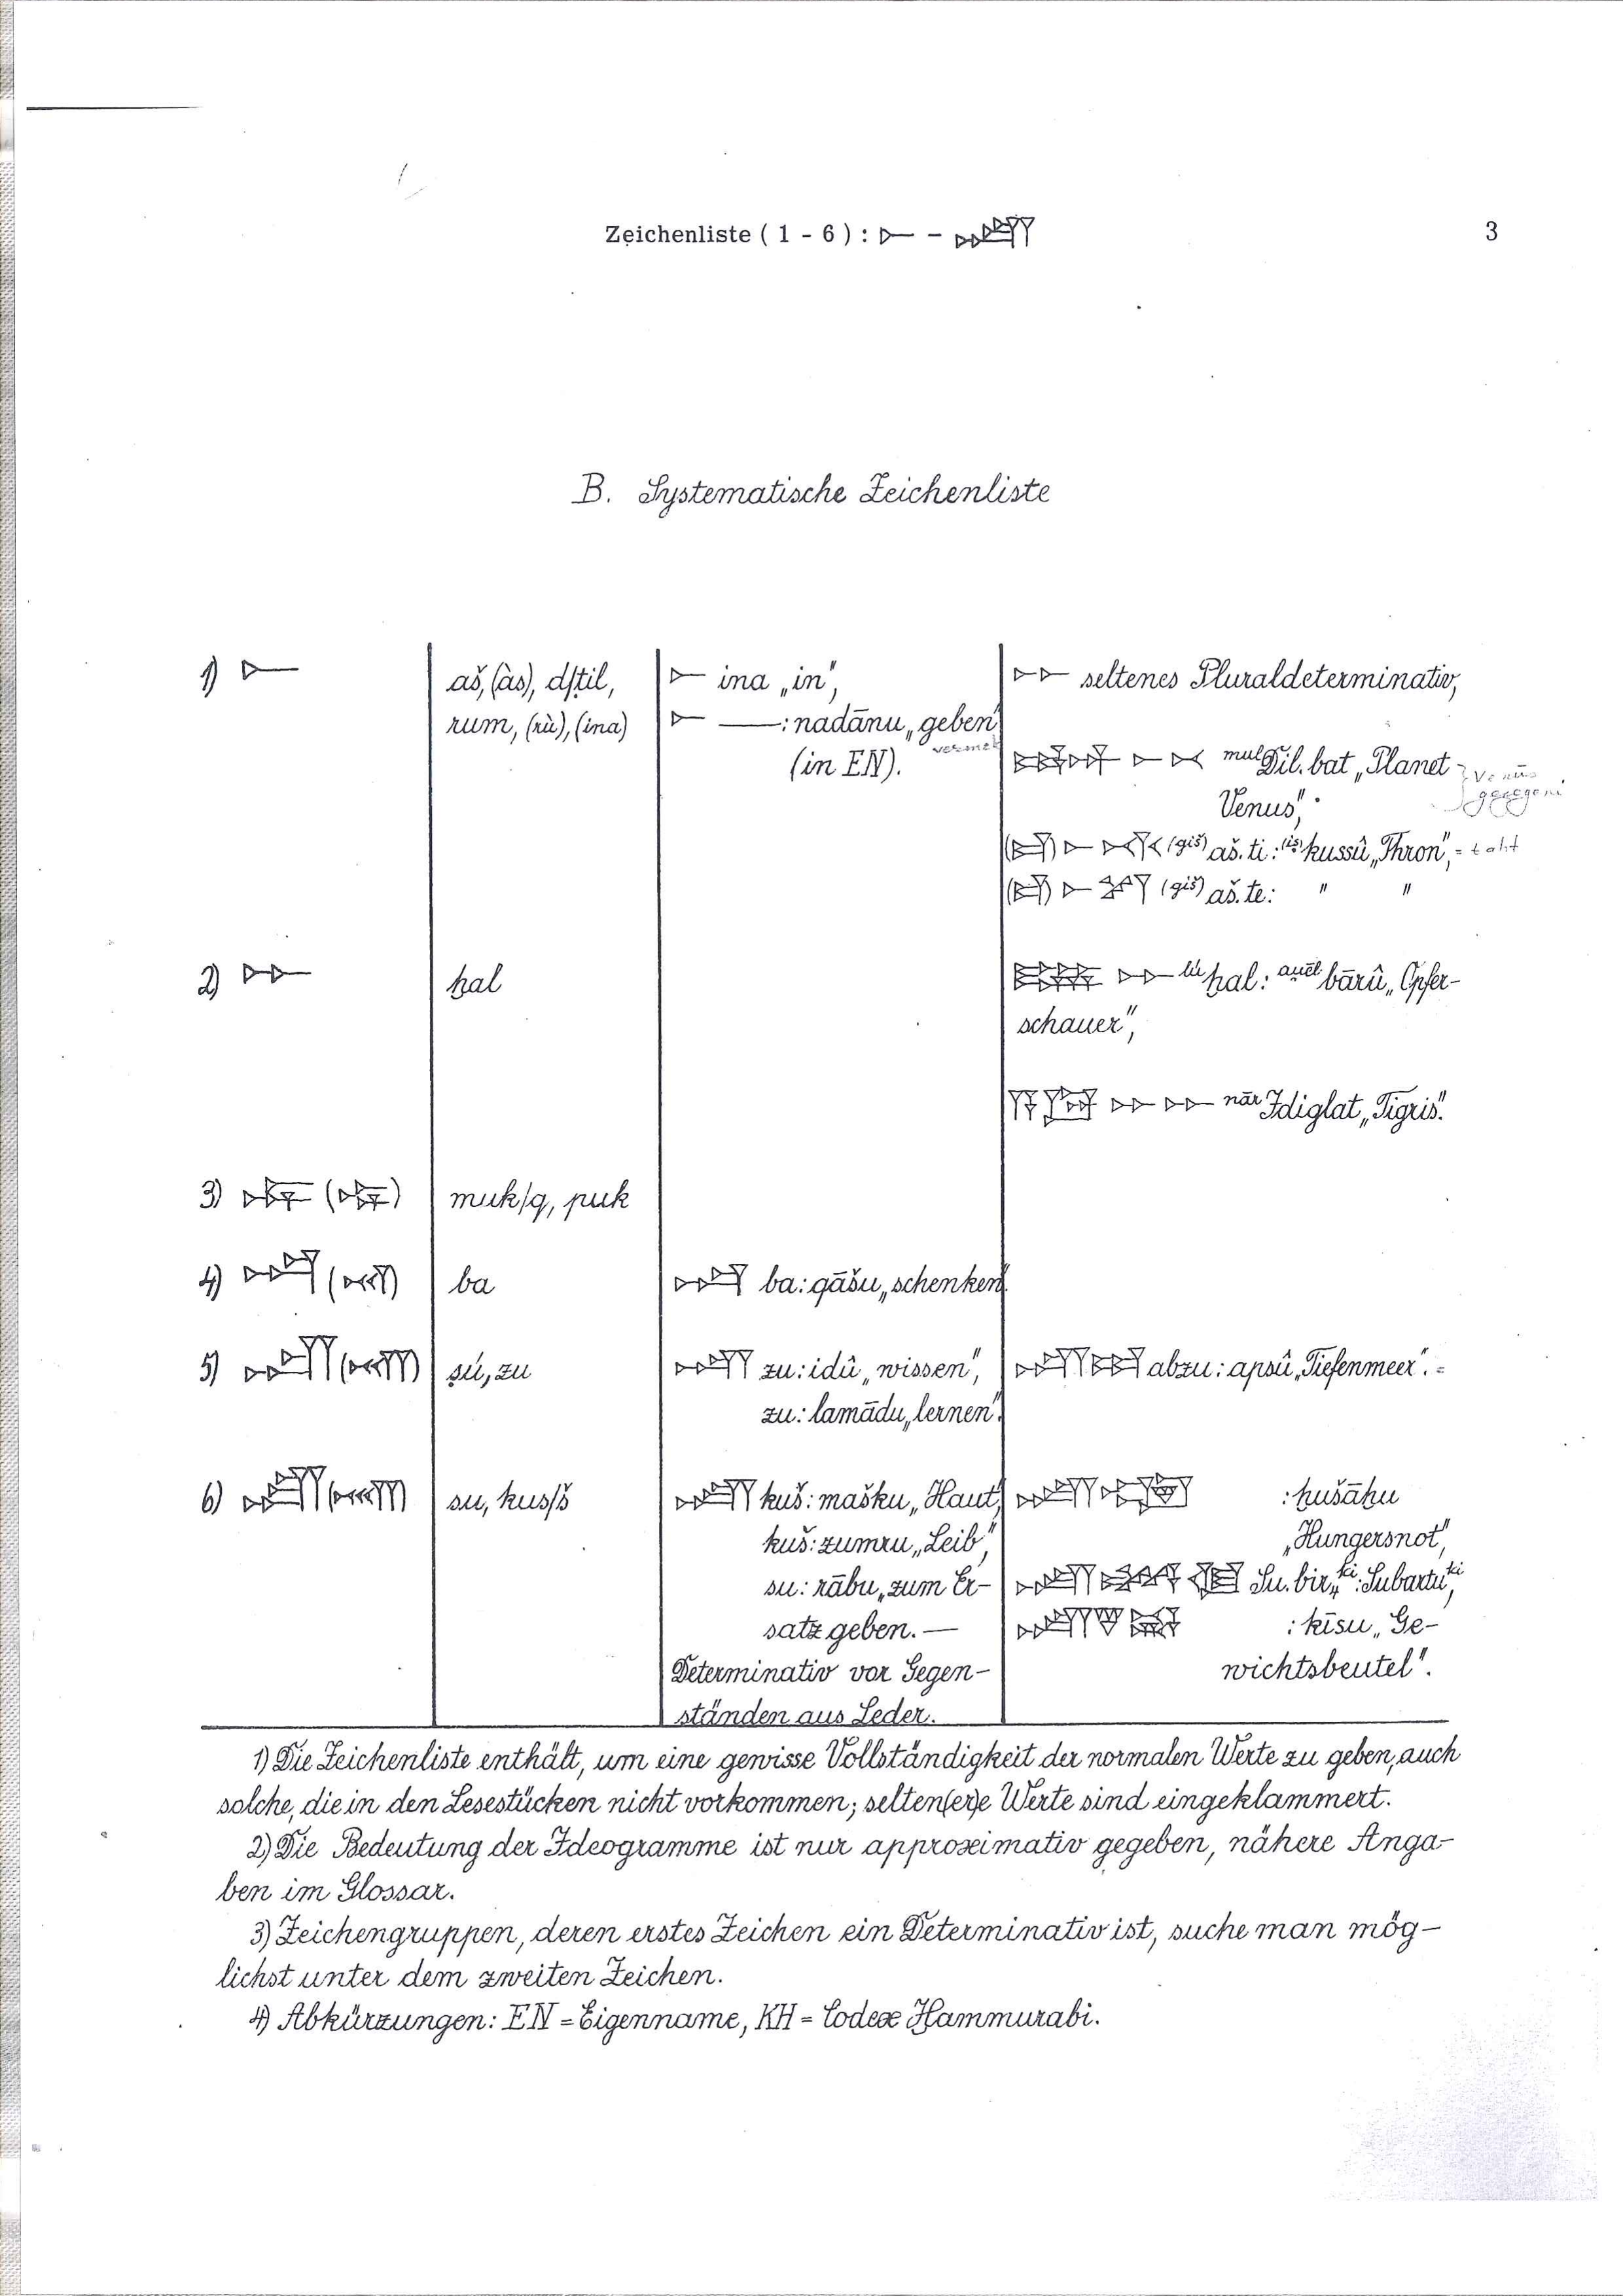 Zeichenliste ( 1 - 6 ) : 𒀸 - 𒋢
3
B. Systematische Zeichenliste
1) 𒀸
aš, (às), d/ṭil,
rum, (rù), (ina)
𒀸 ina „in",
𒀸 —: nadānu „geben"
vermek
(in EN).
seltenes Pluraldeterminativ,
mul Dil.bat „Planet
Venus",
(giš) aš.ti: (iṣ) kussû „Thron", = taht
(giš) aš.te: " "
2) 𒄬
ḫal
lú ḫal: awēl bārû „Opfer-
schauer",
nār Idiglat „Tigris".
3)
muk/q, puk
4) 𒁀
ba
𒁀 ba: qāšu „schenken".
5) 𒍪
ṣú, zu
𒍪 zu: idû „wissen",
zu: lamādu „lernen".
𒍪𒀊 abzu: apsû „Tiefenmeer".
6) 𒋢
su, kus/š
𒋢 kuš: mašku „Haut",
kuš: zumru „Leib",
su: râbu „zum Er-
satz geben. —
Determinativ vor Gegen-
ständen aus Leder.
: ḫušāḫu
„Hungersnot",
Su.bir₄ ki: Subartu ki,
: kīsu „Ge-
wichtsbeutel".
1) Die Zeichenliste enthält, um eine gewisse Vollständigkeit der normalen Werte zu geben, auch
solche, die in den Lesestücken nicht vorkommen; selten(er)e Werte sind eingeklammert.
2) Die Bedeutung der Ideogramme ist nur approximativ gegeben, nähere Anga-
ben im Glossar.
3) Zeichengruppen, deren erstes Zeichen ein Determinativ ist, suche man mög-
lichst unter dem zweiten Zeichen.
4) Abkürzungen: EN = Eigenname, KH = Codex Hammurabi.